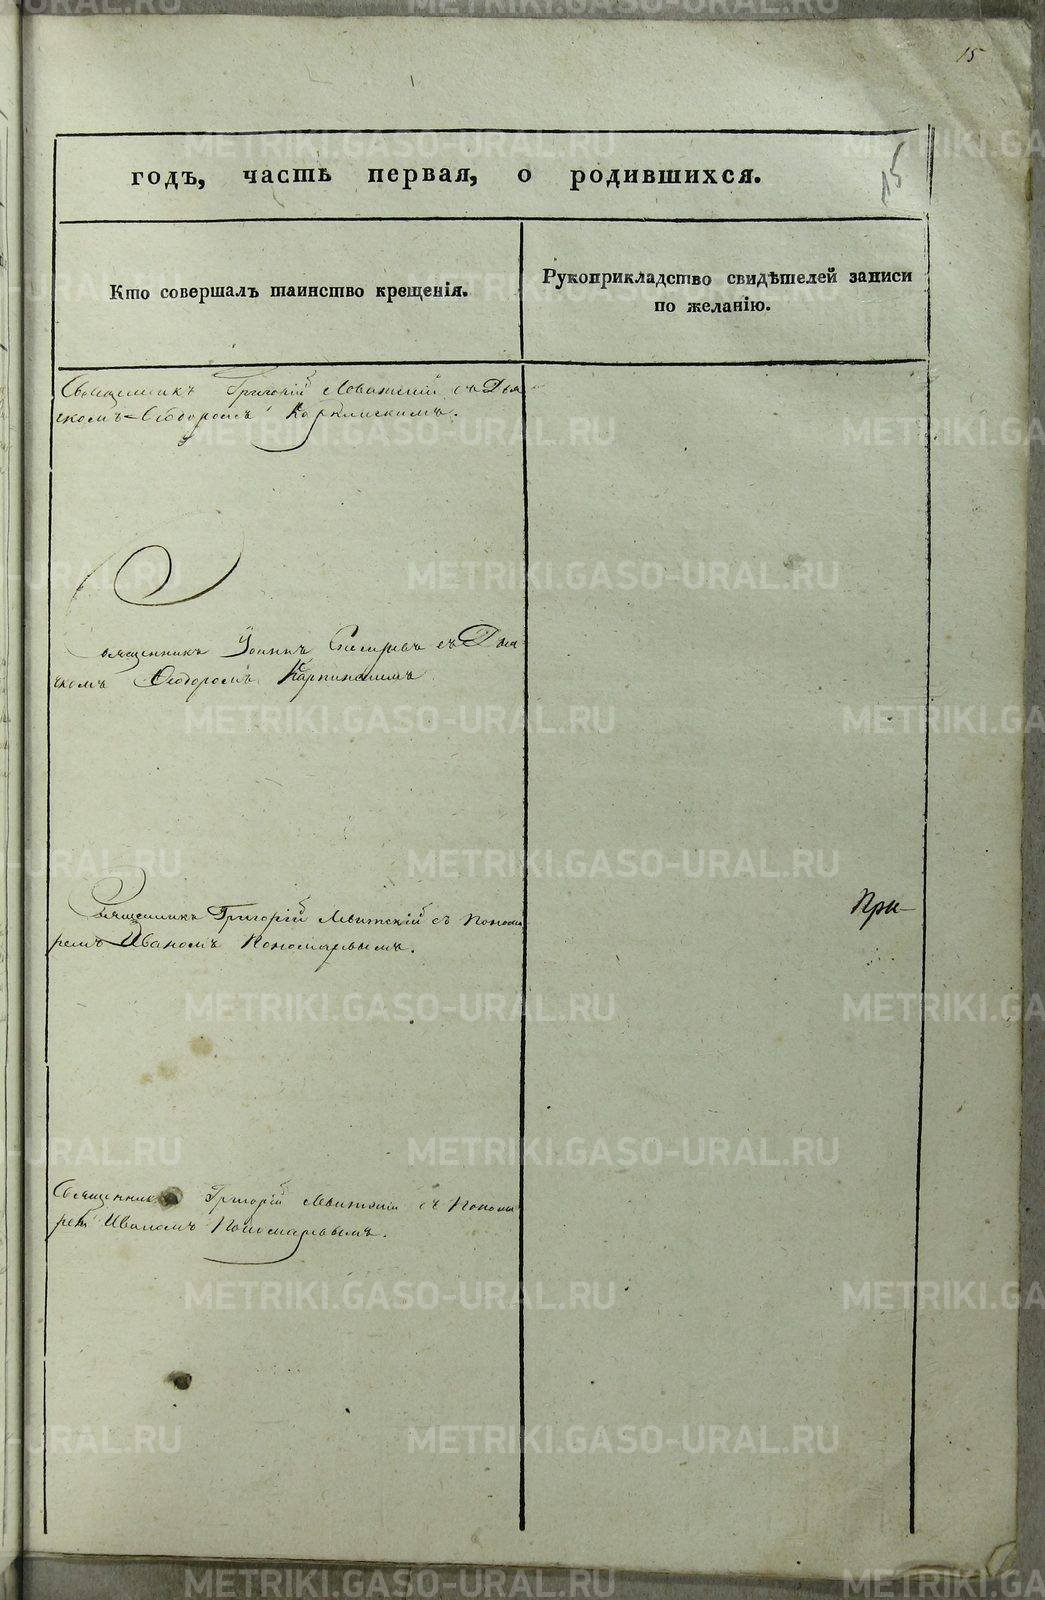 15
15
годъ, часть первая, о родившихся.
Кто совершалъ таинство крещенія.
Рукоприкладство свидѣтелей записи
по желанію.
Священникъ Григорій Левитскій съ Дья
чкомъ Ѳеодоромъ Карпинскимъ.
Священникъ Іоаннъ съ Дья
чкомъ Ѳеодоромъ Карпинскимъ
Священникъ Григорій Левитскій съ Понома
ремъ Иваномъ Пономаревымъ.
При-
Священникъ Григорій Левитскій съ Понома
ремъ Иваномъ Пономаревымъ.
METRIKI.GASO-URAL.RU